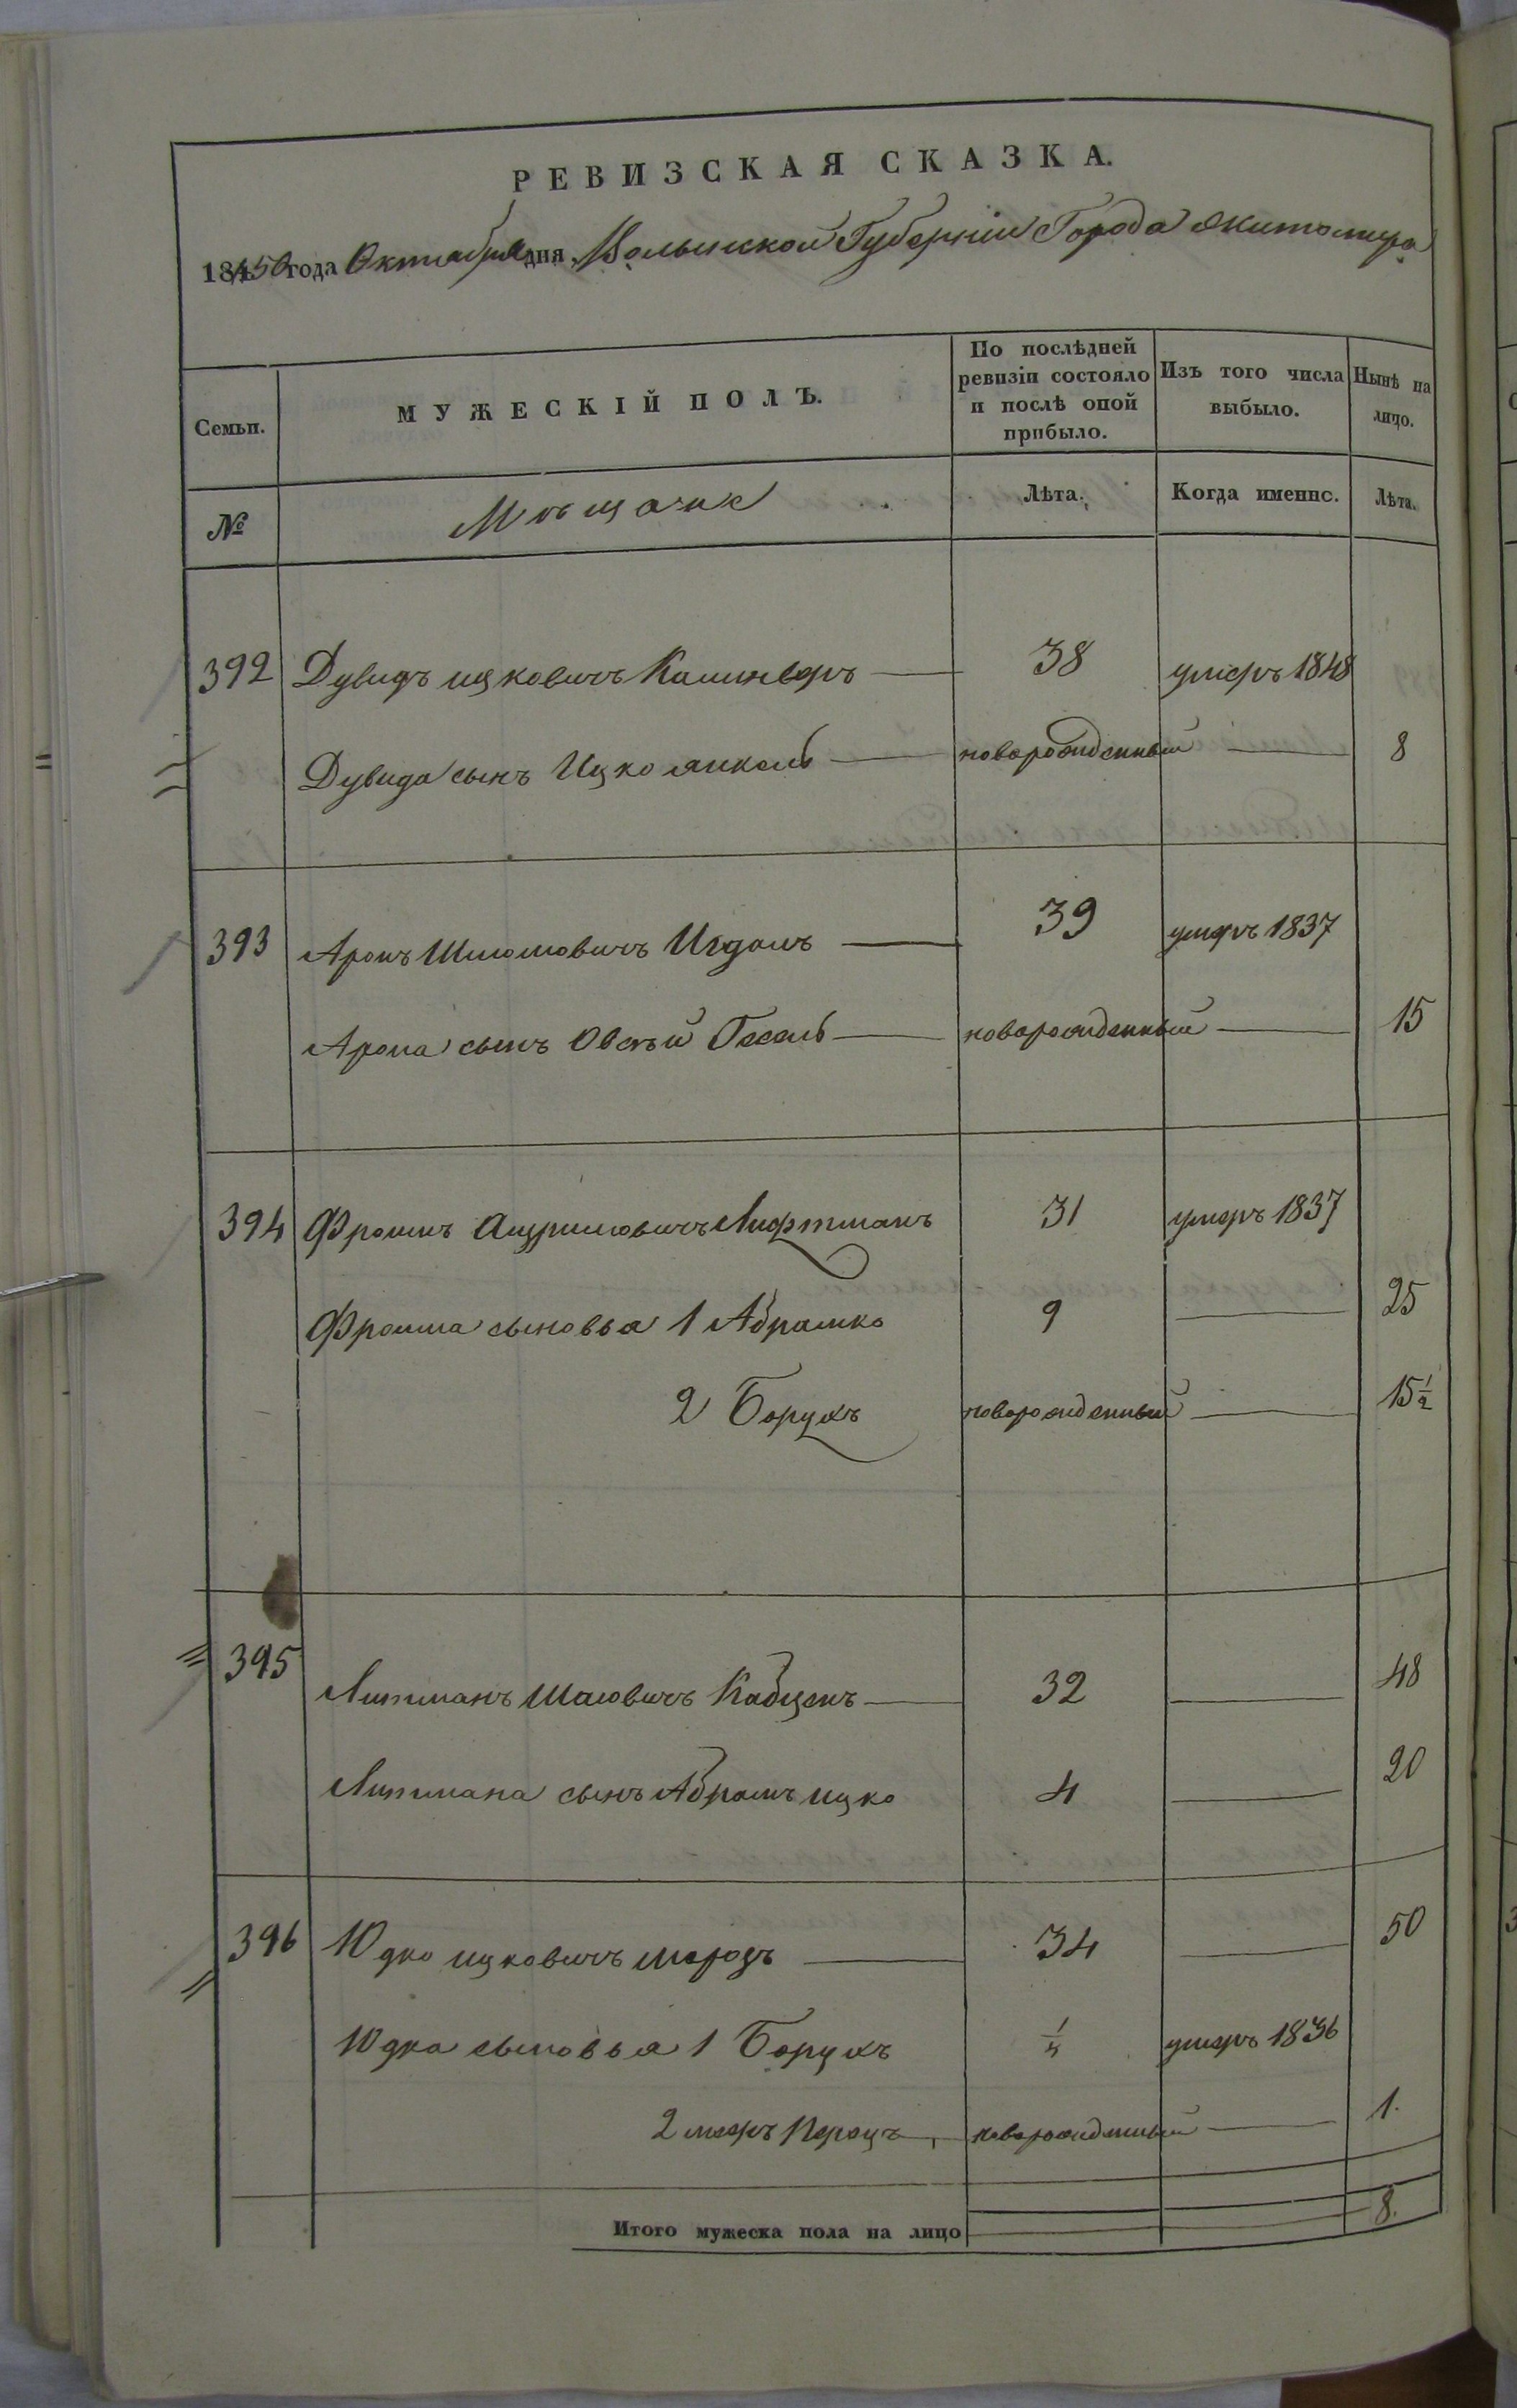 РЕВИЗСКАЯ СКАЗКА.
1850 года Октября дня Волынской Губерніи Города Житомира
Семьи. МУЖЕСКІЙ ПОЛЪ. По послѣдней ревизіи состояло и послѣ оной прибыло. Изъ того числа выбыло. Нынѣ на лицо.
№ Мѣщане Лѣта. Когда именно. Лѣта.
392 Дувидъ Ицковичъ 38 умеръ 1848
Дувида сынъ Ицко Янкель новорожденный 8
393 Аронъ Шлюмовичъ Игдаль 39 умеръ 1837
Арона сынъ Овсѣй Гесель новорожденный 15
394 Фроимъ Лифтманъ 31 умеръ 1837
Фроима сыновья 1 Абрамко 9 25
2 Борухъ новорожденный 15 1/2
395 Литманъ Шаевичъ Кабценъ 32 48
Литмана сынъ Абрамъ Ицко 4 20
396 Юдко Ицковичъ Морозъ 34 50
Юдка сыновья 1 Борухъ 1/4 умеръ 1836
2 Мееръ Перецъ новорожденный 1.
Итого мужеска пола на лицо 8.